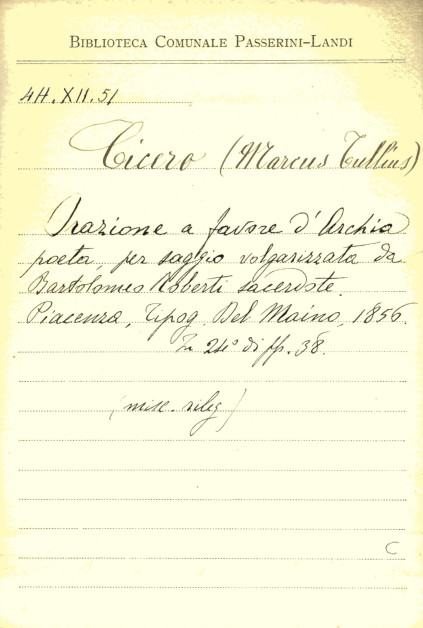 BIBLIOTECA COMUNALE PASSERINI-LANDI
4H.XII.51
Cicero (Marcus Tullius)
Orazione a favore d'Archia
poeta, per saggio volgarizzata da
Bartolomeo Roberti sacerdote.
Piacenza, Tipog. Del Maino, 1856.
In 24° di pp. 38.
(misc. rileg)
C